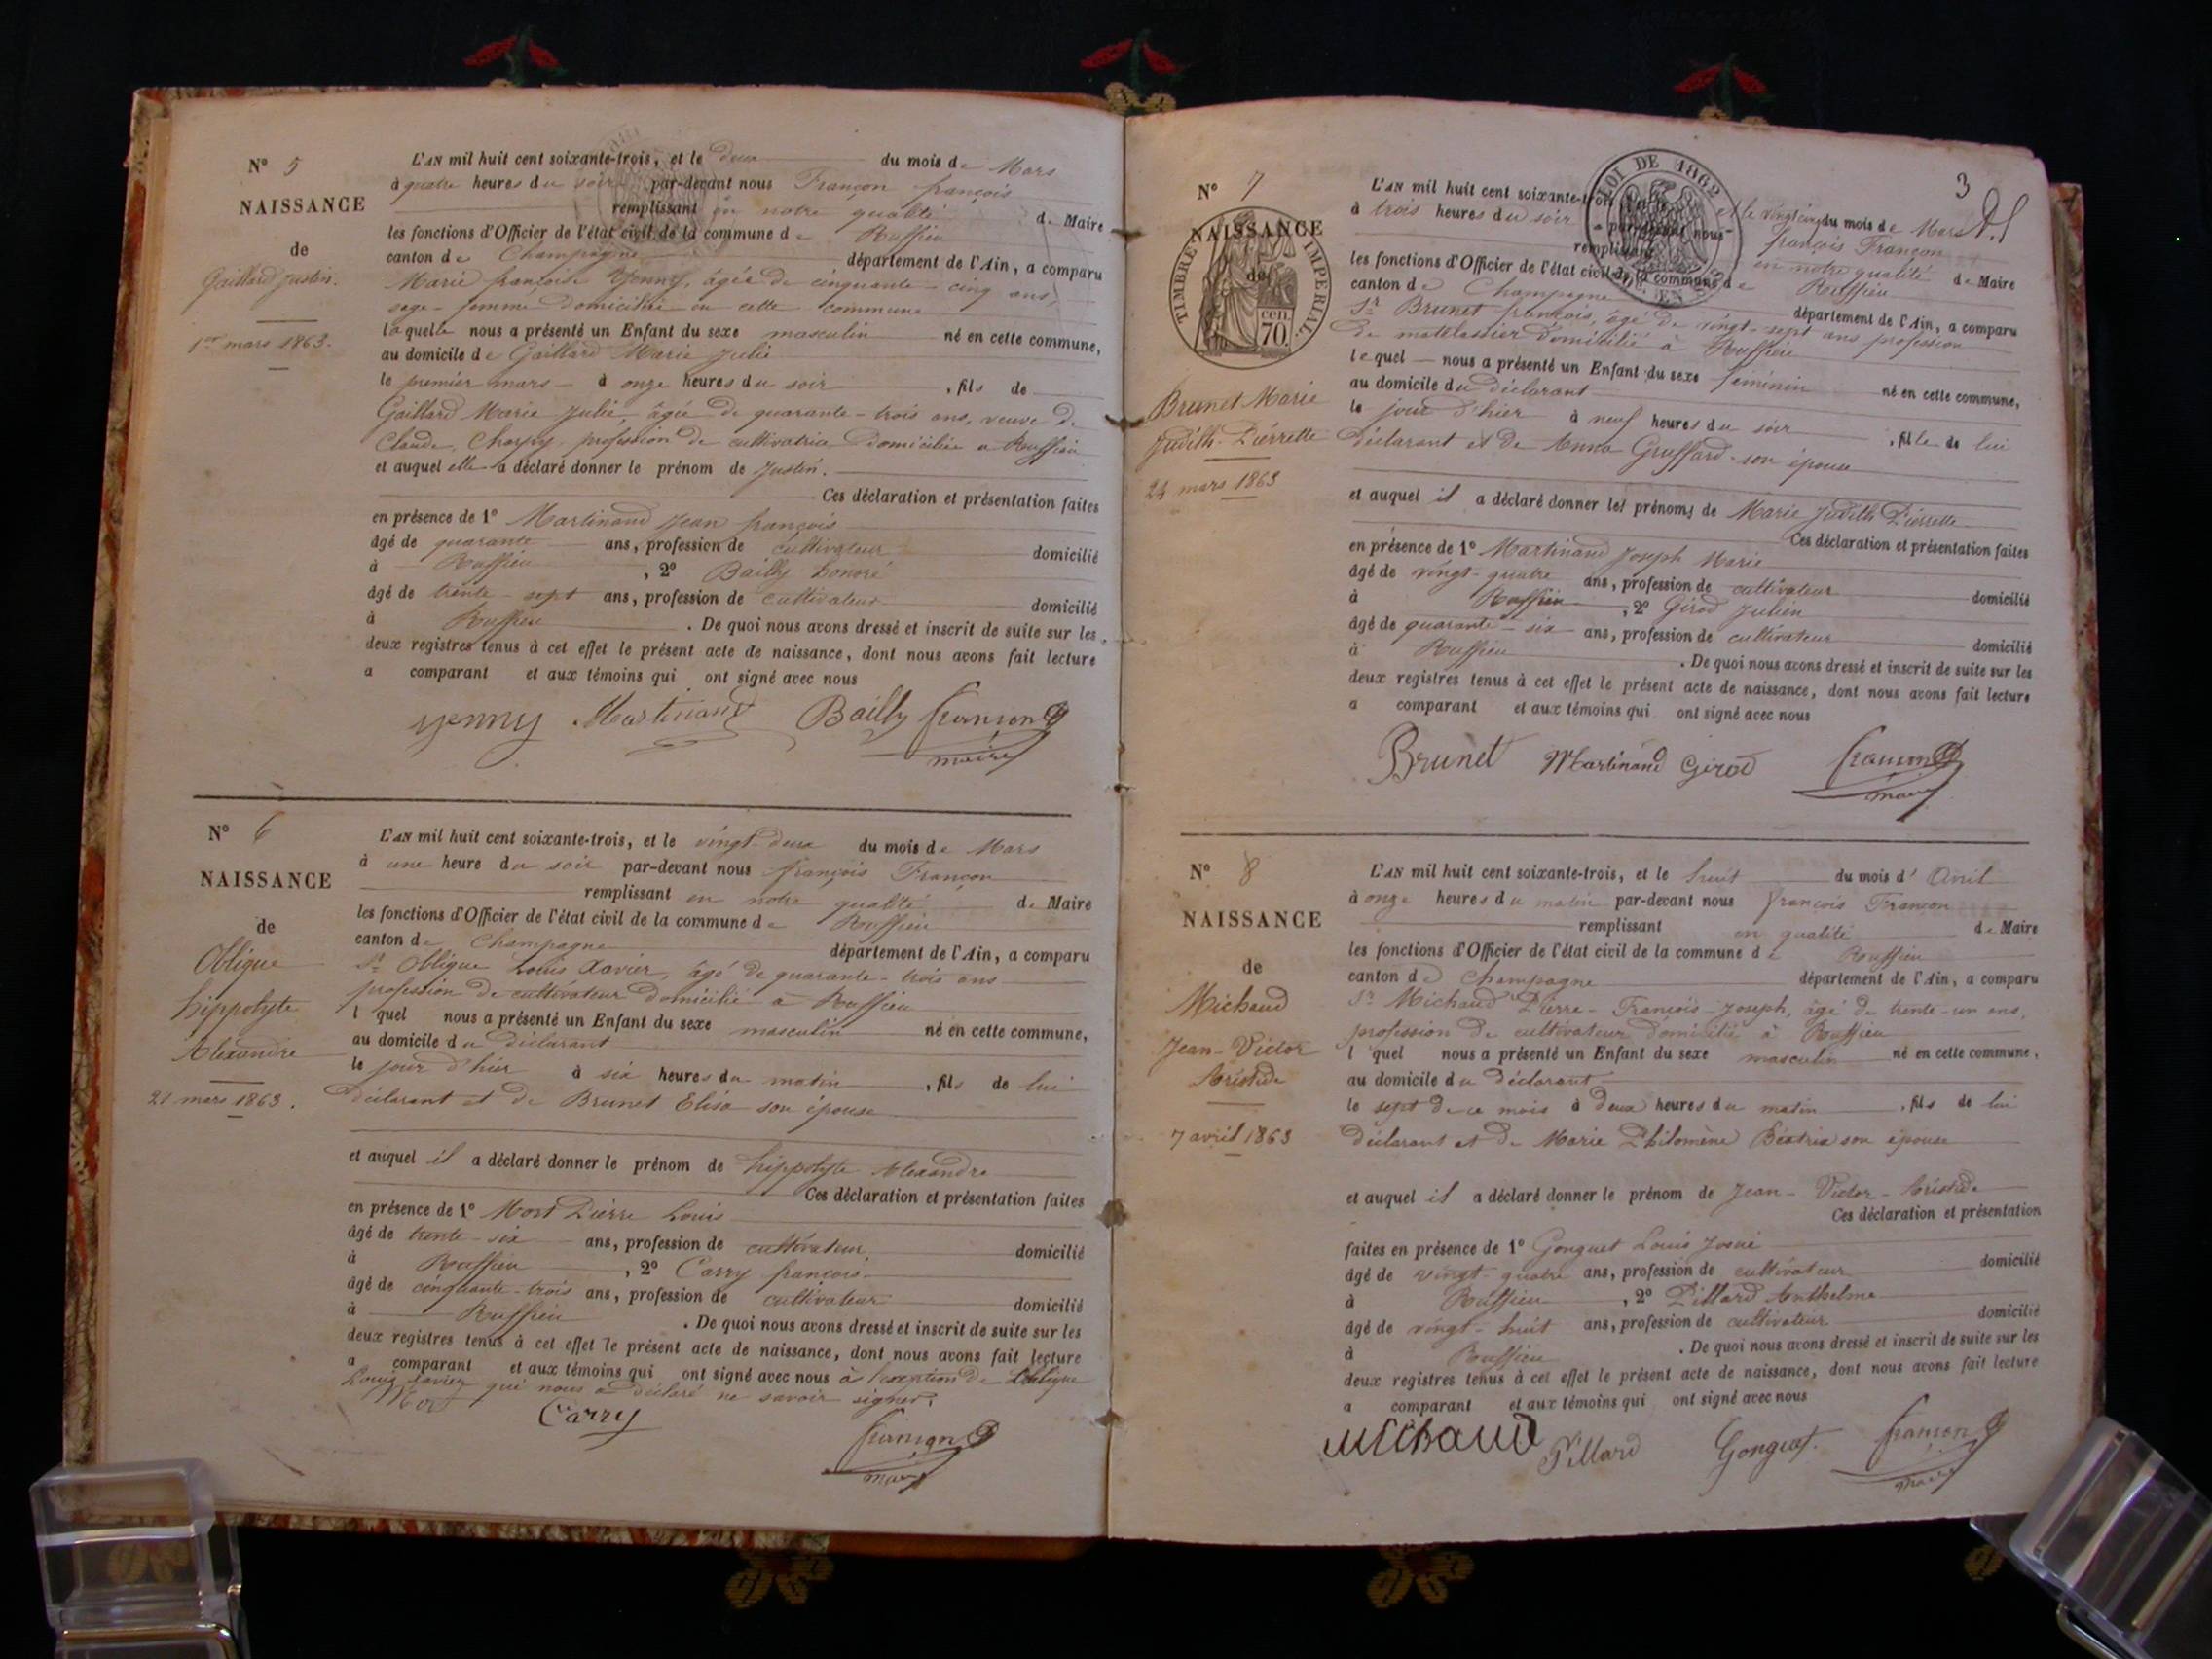 N° 5
NAISSANCE
de
Gaillard Justin.
1er mars 1863.
L'AN mil huit cent soixante-trois, et le deux du mois de Mars
à quatre heures du soir par-devant nous Françon françois
remplissant en notre qualité de Maire
les fonctions d'Officier de l'état civil de la commune de Ruffieu
canton de Champagne département de l'Ain, a comparu
Marie françoise Yenny, âgée de cinquante-cinq ans,
sage-femme domiciliée en cette commune
laquelle nous a présenté un Enfant du sexe masculin né en cette commune,
au domicile de Gaillard Marie Julie
le premier mars à onze heures du soir, fils de
Gaillard Marie Julie, âgée de quarante-trois ans, veuve de
Claude Charpy, profession de cultivatrice domiciliée a Ruffieu
et auquel elle a déclaré donner le prénom de Justin.
Ces déclaration et présentation faites
en présence de 1° Martinand Jean françois
âgé de quarante ans, profession de cultivateur domicilié
à Ruffieu, 2° Bailly honoré
âgé de trente-sept ans, profession de cultivateur domicilié
à Ruffieu. De quoi nous avons dressé et inscrit de suite sur les
deux registres tenus à cet effet le présent acte de naissance, dont nous avons fait lecture
a comparant et aux témoins qui ont signé avec nous
yenny Martinand Bailly françon
maire
N° 6
NAISSANCE
de
Oblique
hippolyte
Alexandre
21 mars 1863.
L'AN mil huit cent soixante-trois, et le vingt deux du mois de Mars
à une heure du soir par-devant nous françois Françon
remplissant en notre qualité de Maire
les fonctions d'Officier de l'état civil de la commune de Ruffieu
canton de Champagne département de l'Ain, a comparu
Sr Oblique Louis Xavier, âgé de quarante-trois ans
profession de cultivateur domicilié à Ruffieu
l quel nous a présenté un Enfant du sexe masculin né en cette commune,
au domicile du déclarant
le jour d'hier à six heures du matin, fils de lui
déclarant et de Brunet Elisa son épouse
et auquel il a déclaré donner le prénom de hippolyte Alexandre
Ces déclaration et présentation faites
en présence de 1° Mort Pierre Louis
âgé de trente-six ans, profession de cultivateur domicilié
à Ruffieu, 2° Carry françois
âgé de cinquante-trois ans, profession de cultivateur domicilié
à Ruffieu. De quoi nous avons dressé et inscrit de suite sur les
deux registres tenus à cet effet le présent acte de naissance, dont nous avons fait lecture
a comparant et aux témoins qui ont signé avec nous à l'exception de Oblique
Louis Xavier qui nous a déclaré ne savoir signer.
Mort Carry françon
maire
3
N° 7
NAISSANCE
de
TIMBRE IMPERIAL
CEN. 70.
LOI DE 1862
Brunet Marie
Judith-Pierrette
24 mars 1863
L'AN mil huit cent soixante-trois et le vingt cinq du mois de Mars
à trois heures du soir par-devant nous françois Françon
remplissant en notre qualité de Maire
les fonctions d'Officier de l'état civil de la commune de Ruffieu
canton de Champagne département de l'Ain, a comparu
Sr Brunet françois, âgé de vingt-sept ans profession
de matelassier domicilié à Ruffieu
lequel nous a présenté un Enfant du sexe féminin né en cette commune,
au domicile du déclarant
le jour d'hier à neuf heures du soir, fille de lui
déclarant et de Anna Gruffard son épouse
et auquel il a déclaré donner les prénoms de Marie Judith Pierrette
Ces déclaration et présentation faites
en présence de 1° Martinand Joseph Marie
âgé de vingt-quatre ans, profession de cultivateur domicilié
à Ruffieu, 2° Girod Julien
âgé de quarante-six ans, profession de cultivateur domicilié
à Ruffieu. De quoi nous avons dressé et inscrit de suite sur les
deux registres tenus à cet effet le présent acte de naissance, dont nous avons fait lecture
a comparant et aux témoins qui ont signé avec nous
Brunet Martinand Girod françon
maire
N° 8
NAISSANCE
de
Michaud
Jean-Victor
Aristide
7 avril 1863
L'AN mil huit cent soixante-trois, et le huit du mois d'Avril
à onze heures du matin par-devant nous françois Françon
remplissant en qualité de Maire
les fonctions d'Officier de l'état civil de la commune de Ruffieu
canton de Champagne département de l'Ain, a comparu
Sr Michaud Pierre-François-Joseph, âgé de trente-un ans,
profession de cultivateur domicilié à Ruffieu
l quel nous a présenté un Enfant du sexe masculin né en cette commune,
au domicile du déclarant
le sept de ce mois à deux heures du matin, fils de lui
déclarant et de Marie Philomène Béatrix son épouse
et auquel il a déclaré donner le prénom de Jean-Victor-Aristide
Ces déclaration et présentation
faites en présence de 1° Gonguet Louis Josué
âgé de vingt-quatre ans, profession de cultivateur domicilié
à Ruffieu, 2° Pillard Anthelme
âgé de vingt-huit ans, profession de cultivateur domicilié
à Ruffieu. De quoi nous avons dressé et inscrit de suite sur les
deux registres tenus à cet effet le présent acte de naissance, dont nous avons fait lecture
a comparant et aux témoins qui ont signé avec nous
Michaud Pillard Gonguet françon
maire